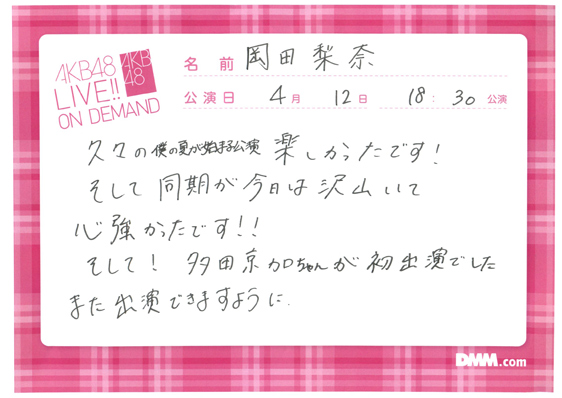 AKB48
LIVE!!
ON DEMAND
AKB
48
名前 岡田梨奈
公演日 4月 12日 18:30公演
久々の僕の夏が始まる公演 楽しかったです!
そして同期が今日は沢山いて
心強かったです!!
そして! 多田京加ちゃんが初出演でした
また出演できますように.
DMM.com